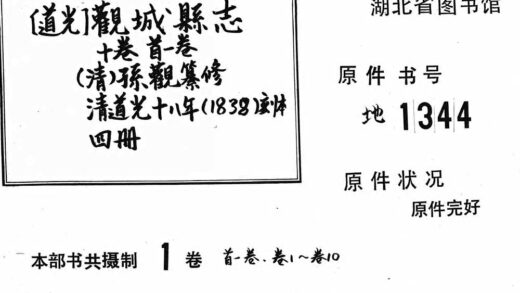 [道光]觀城縣志
十卷 首一卷
(清)孫觀纂修
清道光十八年(1838)刻本
四冊
湖北省图书馆
原件 书号
地 1344
原件状况
原件完好
本部书共摄制 1 卷 首一卷.卷1～卷10